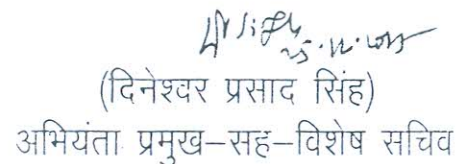 (दिनेश्वर प्रसाद सिंह)
अभियंता प्रमुख–सह–विशेष सचिव